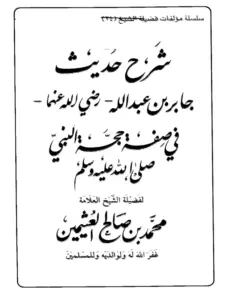 سلسلة مؤلفات فضيلة الشيخ (٣٤)
شرح حديث
جابر بن عبدالله - رضي الله عنهما -
في صفة حجة النبي
صلى الله عليه وسلم
لفضيلة الشيخ العلامة
محمد بن صالح العثيمين
غفر الله له ولوالديه وللمسلمين